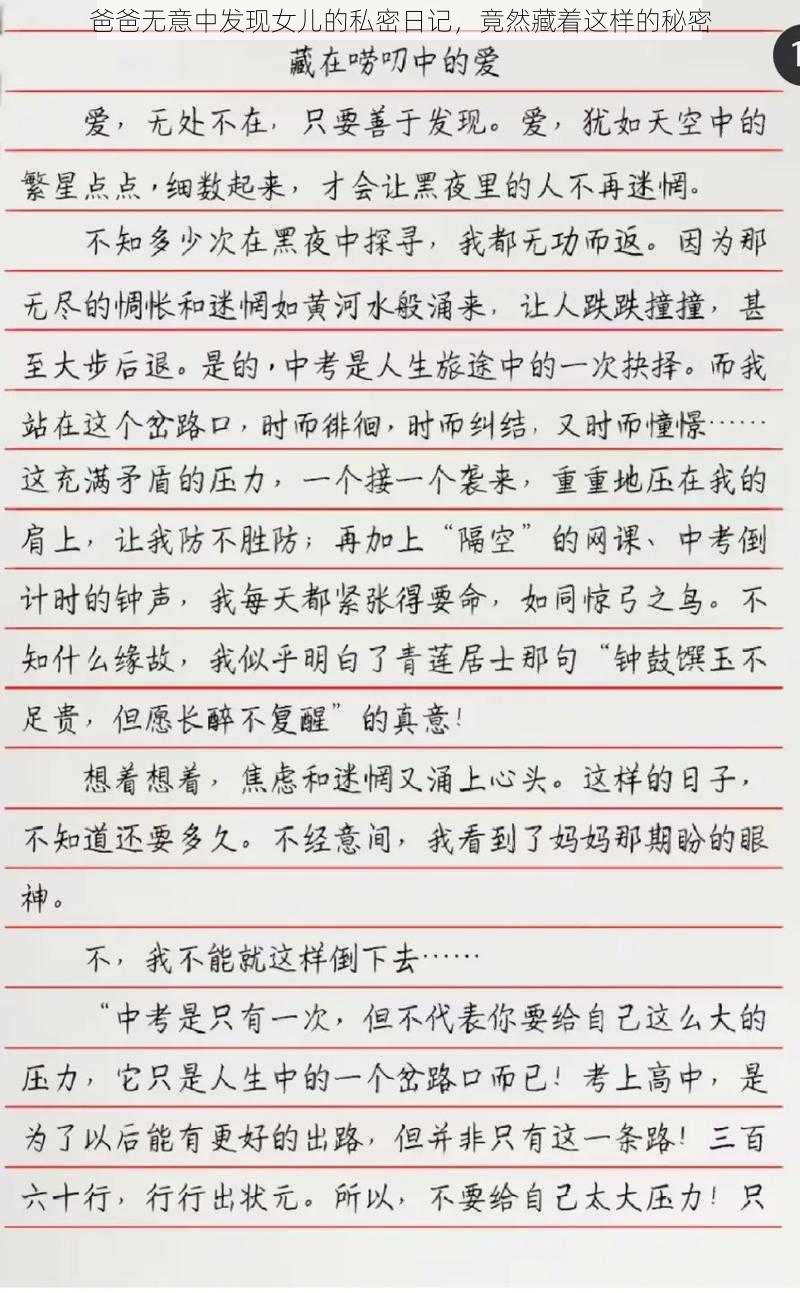 爸爸无意中发现女儿的私密日记，竟然藏着这样的秘密
1
藏在唠叨中的爱
爱，无处不在，只要善于发现。爱，犹如天空中的
繁星点点，细数起来，才会让黑夜里的人不再迷惘。
不知多少次在黑夜中探寻，我都无功而返。因为那
无尽的惆怅和迷惘如黄河水般涌来，让人跌跌撞撞，甚
至大步后退。是的，中考是人生旅途中的一次抉择。而我
站在这个岔路口，时而徘徊，时而纠结，又时而憧憬……
这充满矛盾的压力，一个接一个袭来，重重地压在我的
肩上，让我防不胜防；再加上“隔空”的网课、中考倒
计时的钟声，我每天都紧张得要命，如同惊弓之鸟。不
知什么缘故，我似乎明白了青莲居士那句“钟鼓馔玉不
足贵，但愿长醉不复醒”的真意！
想着想着，焦虑和迷惘又涌上心头。这样的日子，
不知道还要多久。不经意间，我看到了妈妈那期盼的眼
神。
不，我不能就这样倒下去……
“中考是只有一次，但不代表你要给自己这么大的
压力，它只是人生中的一个岔路口而已！考上高中，是
为了以后能有更好的出路，但并非只有这一条路！三百
六十行，行行出状元。所以，不要给自己太大压力！只